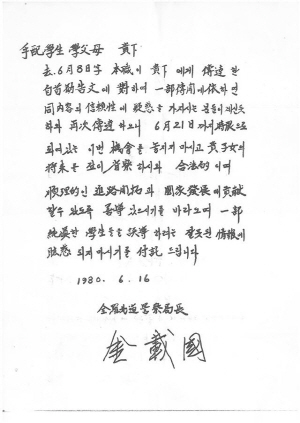 手配學生 學父母 貴下
去 6月 8日字 本職이 貴下에게 傳達한
自首勸告文에 對하여 一部 傳聞에 依하면
同 內容의 信憑性에 疑惑을 가지시는 분들이 있는듯
하와 再次 傳達하오니 6月 21日까지 時限으로
되여있는 이번 機會를 놓치지 마시고 貴子女의
將來를 깊이 省察하시와 合法的이며
順理的인 進路開拓과 國家發展에 貢獻
할수 있도록 善導 있으시기를 바라오며 一部
純眞한 學生들을 誤導하려는 잘못된 情報에
眩惑되지 마시기를 付託드립니다
1980. 6. 16
全羅南道 警察局長
金載國